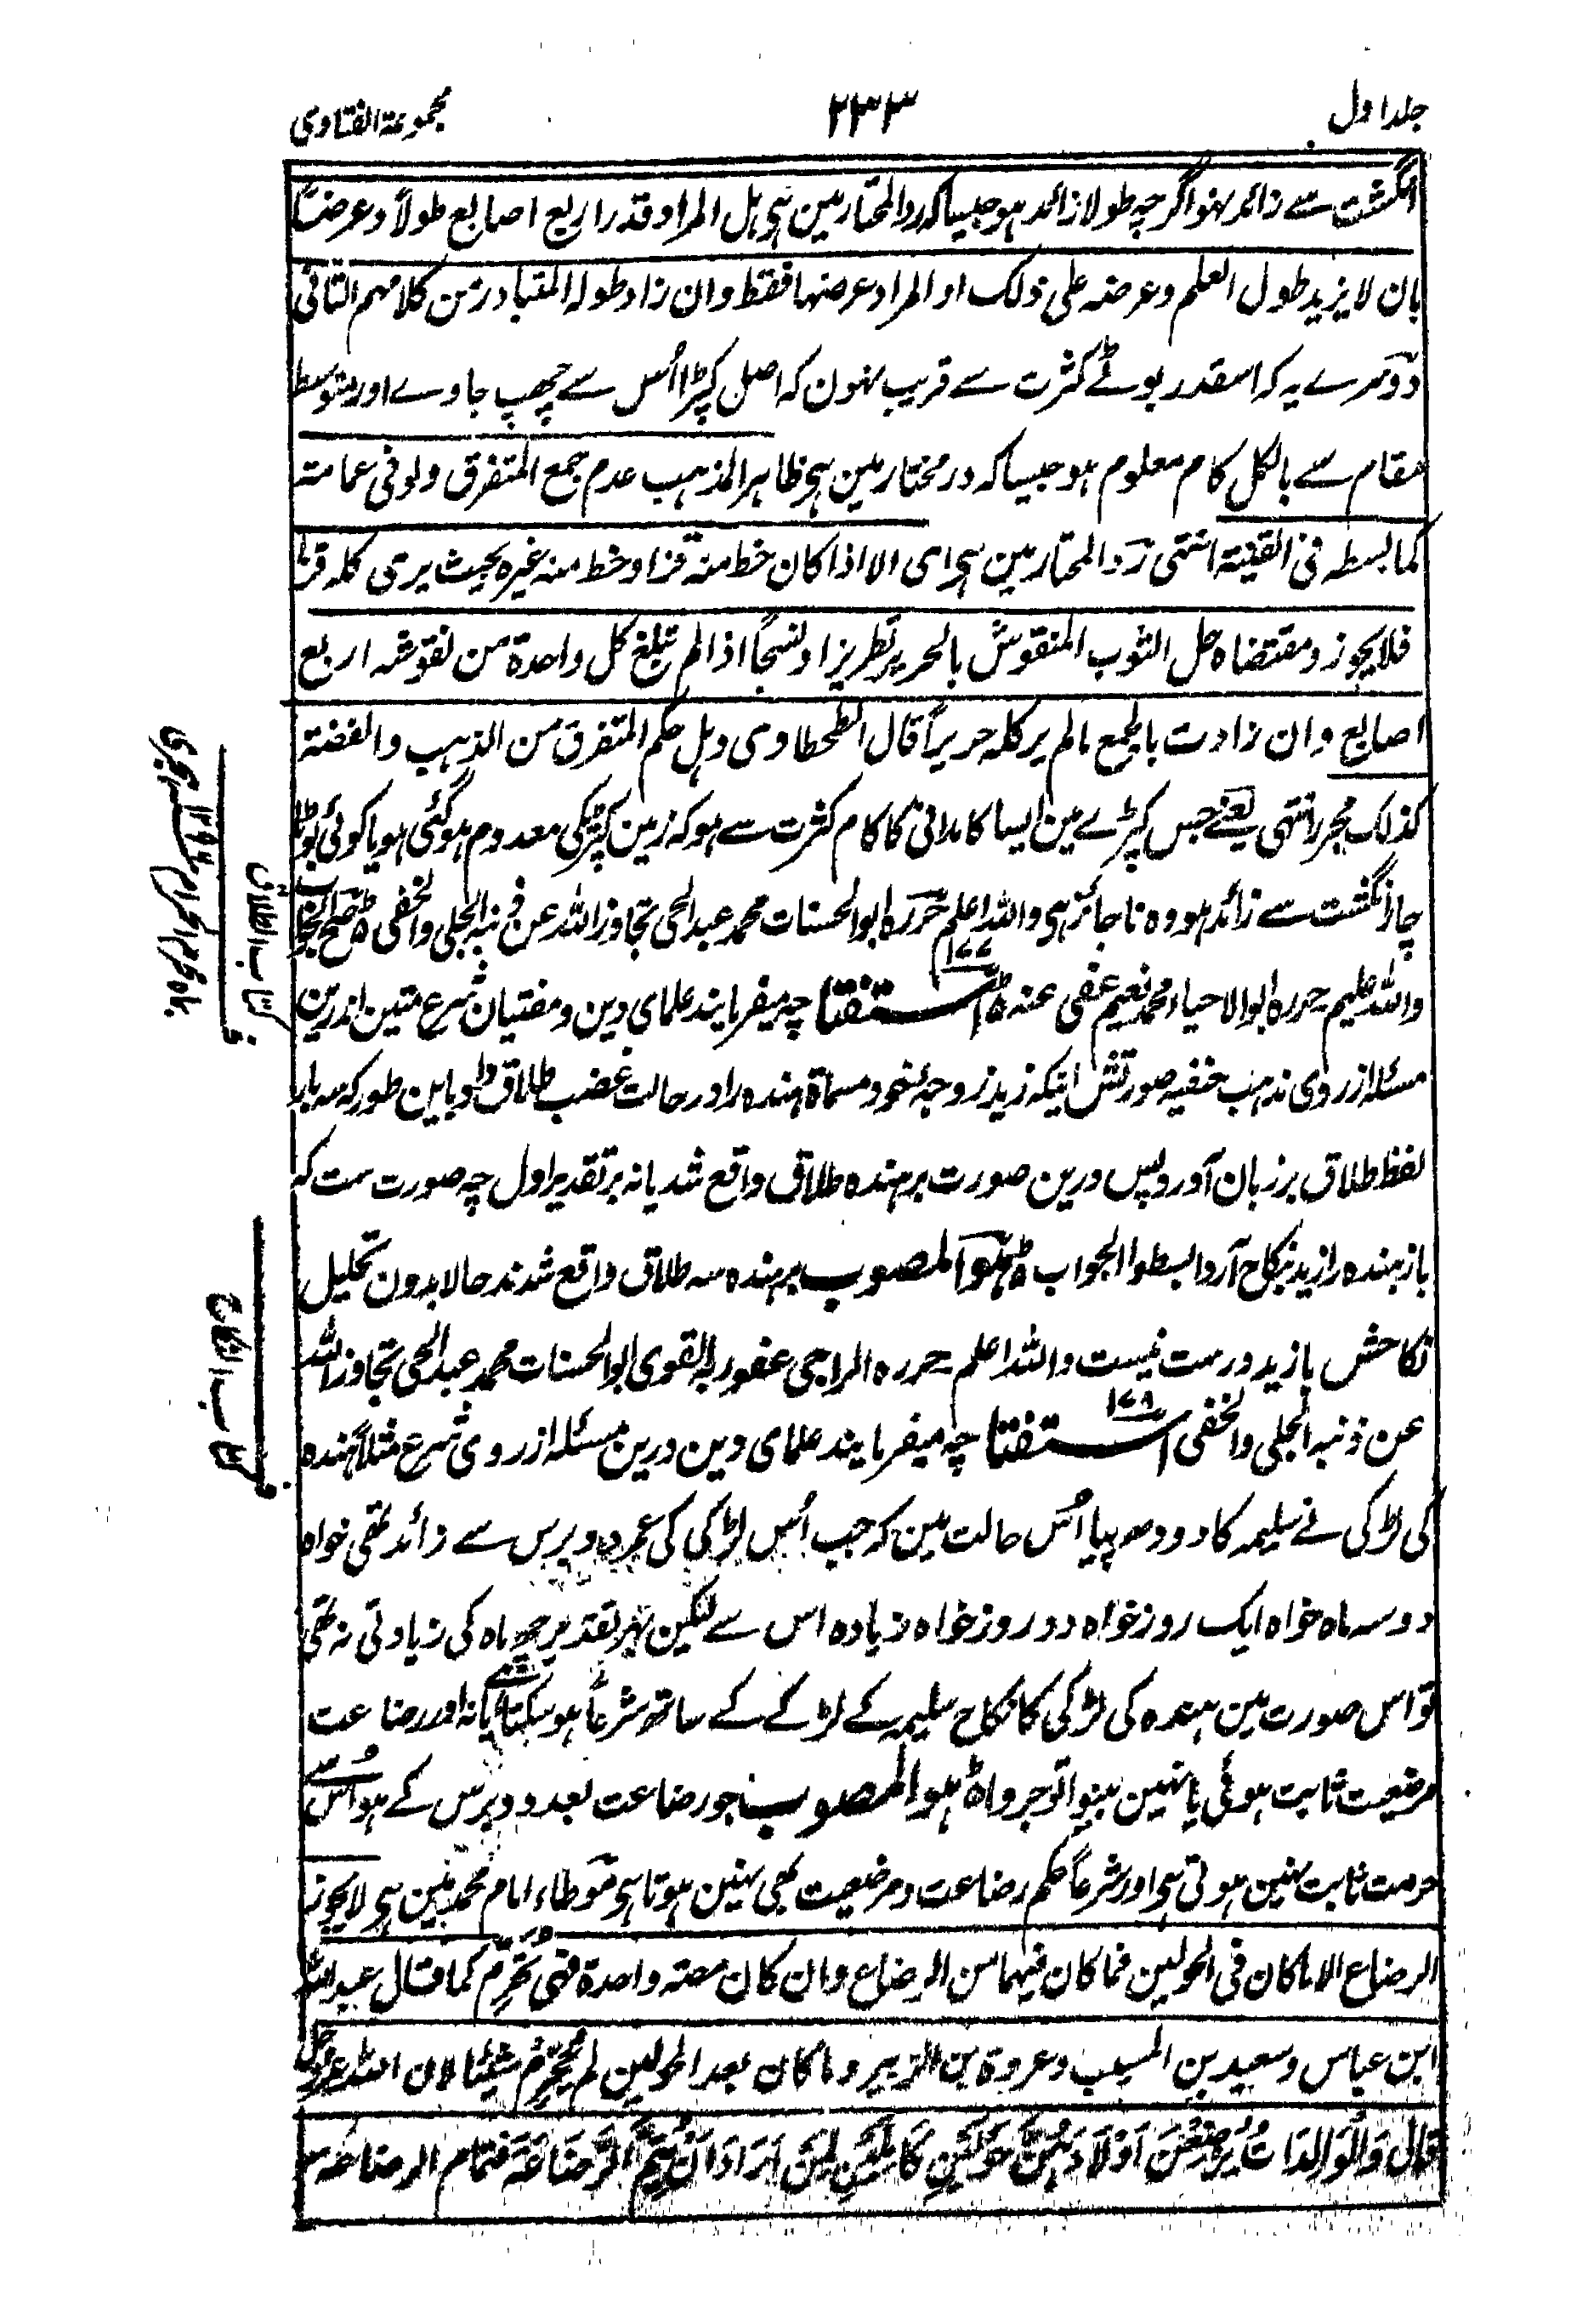 جلد اول
۲۳۳
مجموعة الفتاوی
انگشت سے زائد نہو اگرچہ طولا زائد ہو جیسا کہ رد المحتار مین ہی ہل المراد قدر اربع اصابع طولاً وعرضاً
بان لا یزید طول العلم وعرضہ علی ذلک او المراد عرضہا فقط وان زاد طولہ المتبادر من کلامہم الثانی
دوسرے یہ کہ اسقدر بوٹے کثرت سے قریب نہون کہ اصل کپڑا اُس سے چھپ جاوے اور متوسط
مقام سے بالکل کام معلوم ہو جیسا کہ در مختار مین ہی ظاہر المذہب عدم جمع المتفرق ولو فی عمامۃ
کما بسطہ فی القنیۃ انتہی رد المحتار مین ہی ای الا اذا کان خط منہ قزا وخط منہ غیرہ بحیث یری کلہ قزا
فلا یجوز ومقتضاہ حل الثوب المنقوش بالحریر تطریزا ونسجاً اذا لم تبلغ کل واحدۃ من نقوشہ اربع
اصابع وان زادت بالجمع مالم یر کلہ حریراً قال الطحطاوی وہل حکم المتفرق من الذہب والفضۃ
کذلک یحرر انتہی یعنے جس کپڑے مین ایسا کامدانی کا کام کثرت سے ہو کہ زمین کپڑیکی معدوم ہوگئی ہو یا کوئی بوٹا
چار انگشت سے زائد ہو وہ ناجائز ہی واللہ اعلم حررہ ابو الحسنات محمد عبد الحی تجاوز اللہ عن ذنبہ الجلی والخفی صح الجواب
واللہ علیم حررہ ابو الاحیاء محمد نعیم عفی عنہ استفتا ۱۷۷ چہ میفرمایند علمای دین و مفتیان شرع متین اندرین
مسئلہ از روی مذہب حنفیہ صورتش اینکہ زید زوجۂ خود مسماۃ ہندہ را در حالت غضب طلاق داد باین طور کہ سہ بار
لفظ طلاق بر زبان آورد پس درین صورت بر ہندہ طلاق واقع شد یا نہ بر تقدیر اول چہ صورت ست کہ
باز ہندہ را زید بنکاح آرد ابسطوا الجواب ہو المصوب بر ہندہ سہ طلاق واقع شدند حالا بدون تحلیل
نکاحش با زید درست نیست واللہ اعلم حررہ الراجی عفو ربہ القوی ابو الحسنات محمد عبد الحی تجاوز اللہ
عن ذنبہ الجلی والخفی استفتا ۱۷۸ چہ میفرمایند علمای دین درین مسئلہ از روی شرع مثلاً ہندہ
کی لڑکی نے سلیمہ کا دودھ پیا اُس حالت مین کہ جب اُس لڑکی کی عمر دو برس سے زائد تھی خواہ
دو سہ ماہ خواہ ایک روز خواہ دو روز خواہ زیادہ اس سے لیکن بہر تقدیر چھ ماہ کی زیادتی نہ تھی
تو اس صورت مین ہندہ کی لڑکی کا نکاح سلیمہ کے لڑکے کے ساتھ شرعاً ہو سکتا ہے یا نہ اور رضاعت
مرضعیت ثابت ہوئی یا نہین بینوا توجروا ہو المصوب جو رضاعت بعد دو برس کے ہو اُس سے
حرمت ثابت نہین ہوتی ہی اور شرعاً حکم رضاعت و مرضعیت بھی نہین ہوتا ہی موطاء امام محمد مین ہی لا یجوز
الرضاع الا ما کان فی الحولین فما کان فیہما من الرضاع وان کان مصۃ واحدۃ فہی تُحَرِّم کما قال عبد اللہ
ابن عباس وسعید بن المسیب وعروۃ بن الزبیر وما کان بعد الحولین لم یُحَرِّم شیئا لان اللہ عز وجل
قال وَالْوَالِدَاتُ یُرْضِعْنَ اَوْلَادَہُنَّ حَوْلَیْنِ کَامِلَیْنِ لِمَنْ اَرَادَ اَنْ یُتِمَّ الرَّضَاعَۃَ فتمام الرضاعۃ
کتاب الطلاق
کتاب النکاح